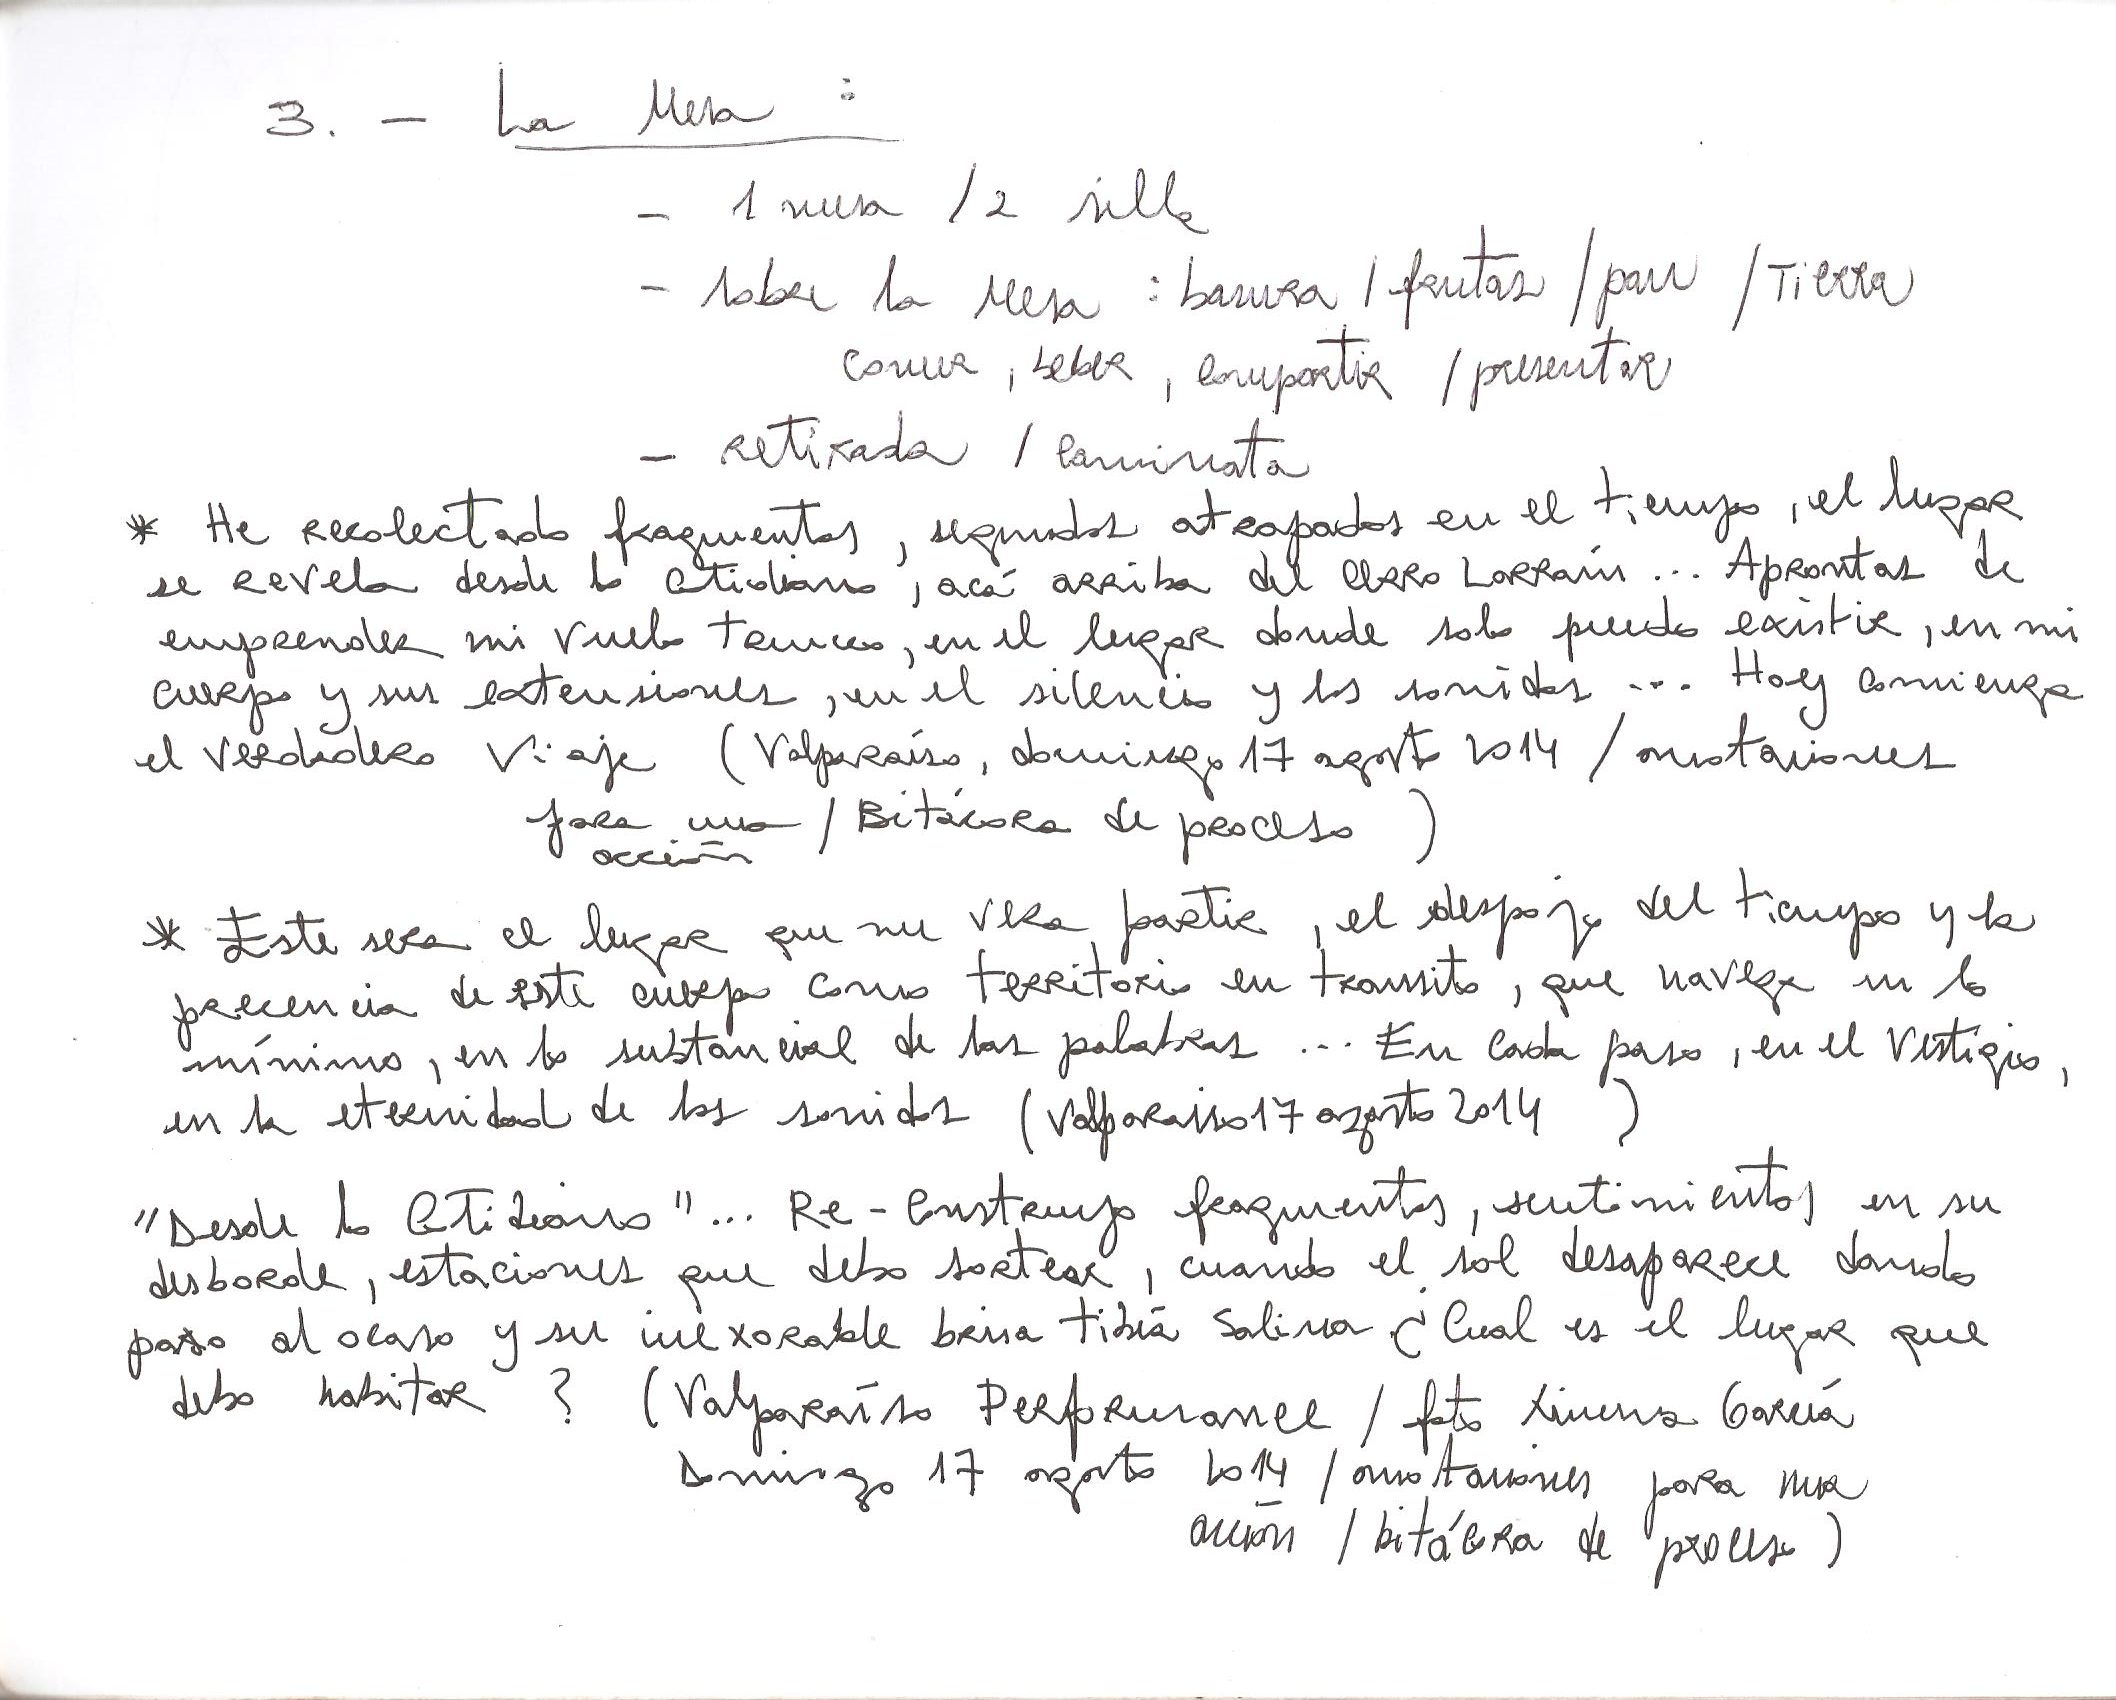 3. - La Mesa :
- 1 mesa / 2 silla
- sobre la Mesa : basura / frutas / pan / Tierra
comer, beber, compartir / presentar
- retirada / caminata
* He recolectado fragmentos, segundos atrapados en el tiempo, el lugar
se revela desde lo cotidiano, acá arriba del cerro Larraín... Aprontas de
emprender mi vuelo trunco, en el lugar donde solo puedo existir, en mi
cuerpo y sus extensiones, en el silencio y los sonidos ... Hoy comienza
el verdadero viaje (Valparaíso, domingo 17 agosto 2014 / anotaciones
para una / Bitácora de proceso )
acción
* Este sera el lugar que me vera partir, el despojo del tiempo y la
precencia de este cuerpo como territorio en transito, que navega en lo
mínimo, en lo substancial de las palabras ... En cada paso, en el vestigio,
en la eternidad de los sonidos (Valparaiso 17 agosto 2014 )
"Desde lo Cotidiano"... Re-Construyo fragmentos, sentimientos en su
desborde, estaciones que debo sortear, cuando el sol desaparece dando
paso al ocaso y su inexorable brisa tibia salina ¿Cual es el lugar que
debo habitar ? (Valparaíso Performance / foto Ximena García
Domingo 17 agosto 2014 / anotaciones para una
acción / bitácora de proceso )